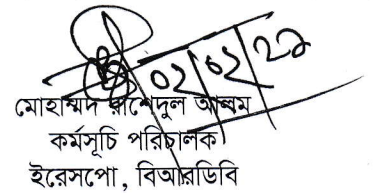 ০২/০২/২১
মোহাম্মদ রাশেদুল আলম
কর্মসূচি পরিচালক
ইরেসপো, বিআরডিবি